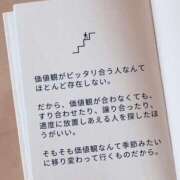 価値観がピッタリ合う人なんて
ほとんど存在しない。
だから、価値観が合わなくても、
すり合わせたり、譲り合ったり、
適度に放置しあえる人を探したほ
うがいい。
そもそも価値観なんて季節みたい
に移り変わって行くものだから。